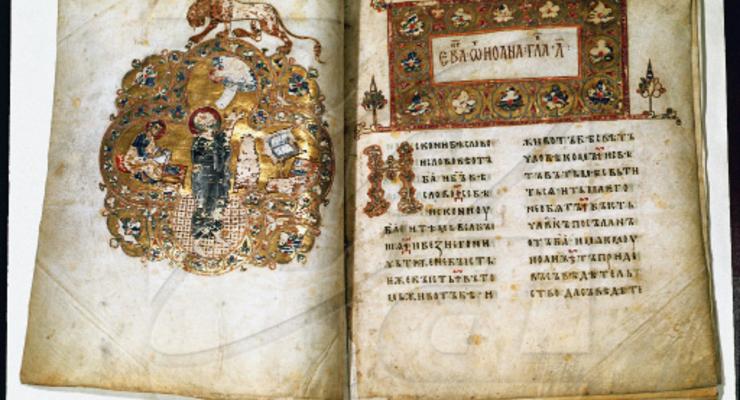 ЕВ҃А ѾИОАНА ГЛА҃ А҃
ИСКОНИБѢСЛОВО
ИСЛОВОБѢОТЪ
БА҃ИБЪ҃БѢ
СЛОВОСЕБѢ
ИСКОНИОУ
БА҃ИТѢМЬВЬСѦБЫ
ШАИБЕЗНЕГОНИ
ЧЬТОЖЕНЕБЫСТЬ
ѤЖЕБЫСТЬВЪТО
МЬЖИВОТЪБѢИ
ЖИВОТЪБѢСВѢТЪ
ЧЛОВѢКОМЪИСВѢ
ТЪВЪТЬМѢСВЬТИ
ТЬСѦИТЬМАѤГО
НЕОБѦТЪБЫСТЬ
ЧЛ҃ВКЪПОСЪЛАНЪ
ОТЪБА҃ИМѦѤМОУ
ИОАНЪТЪПРИДЕ
ВЪСЪВѢДѢТЕЛЬ
СТВОДАСЪВѢДѢТЕ